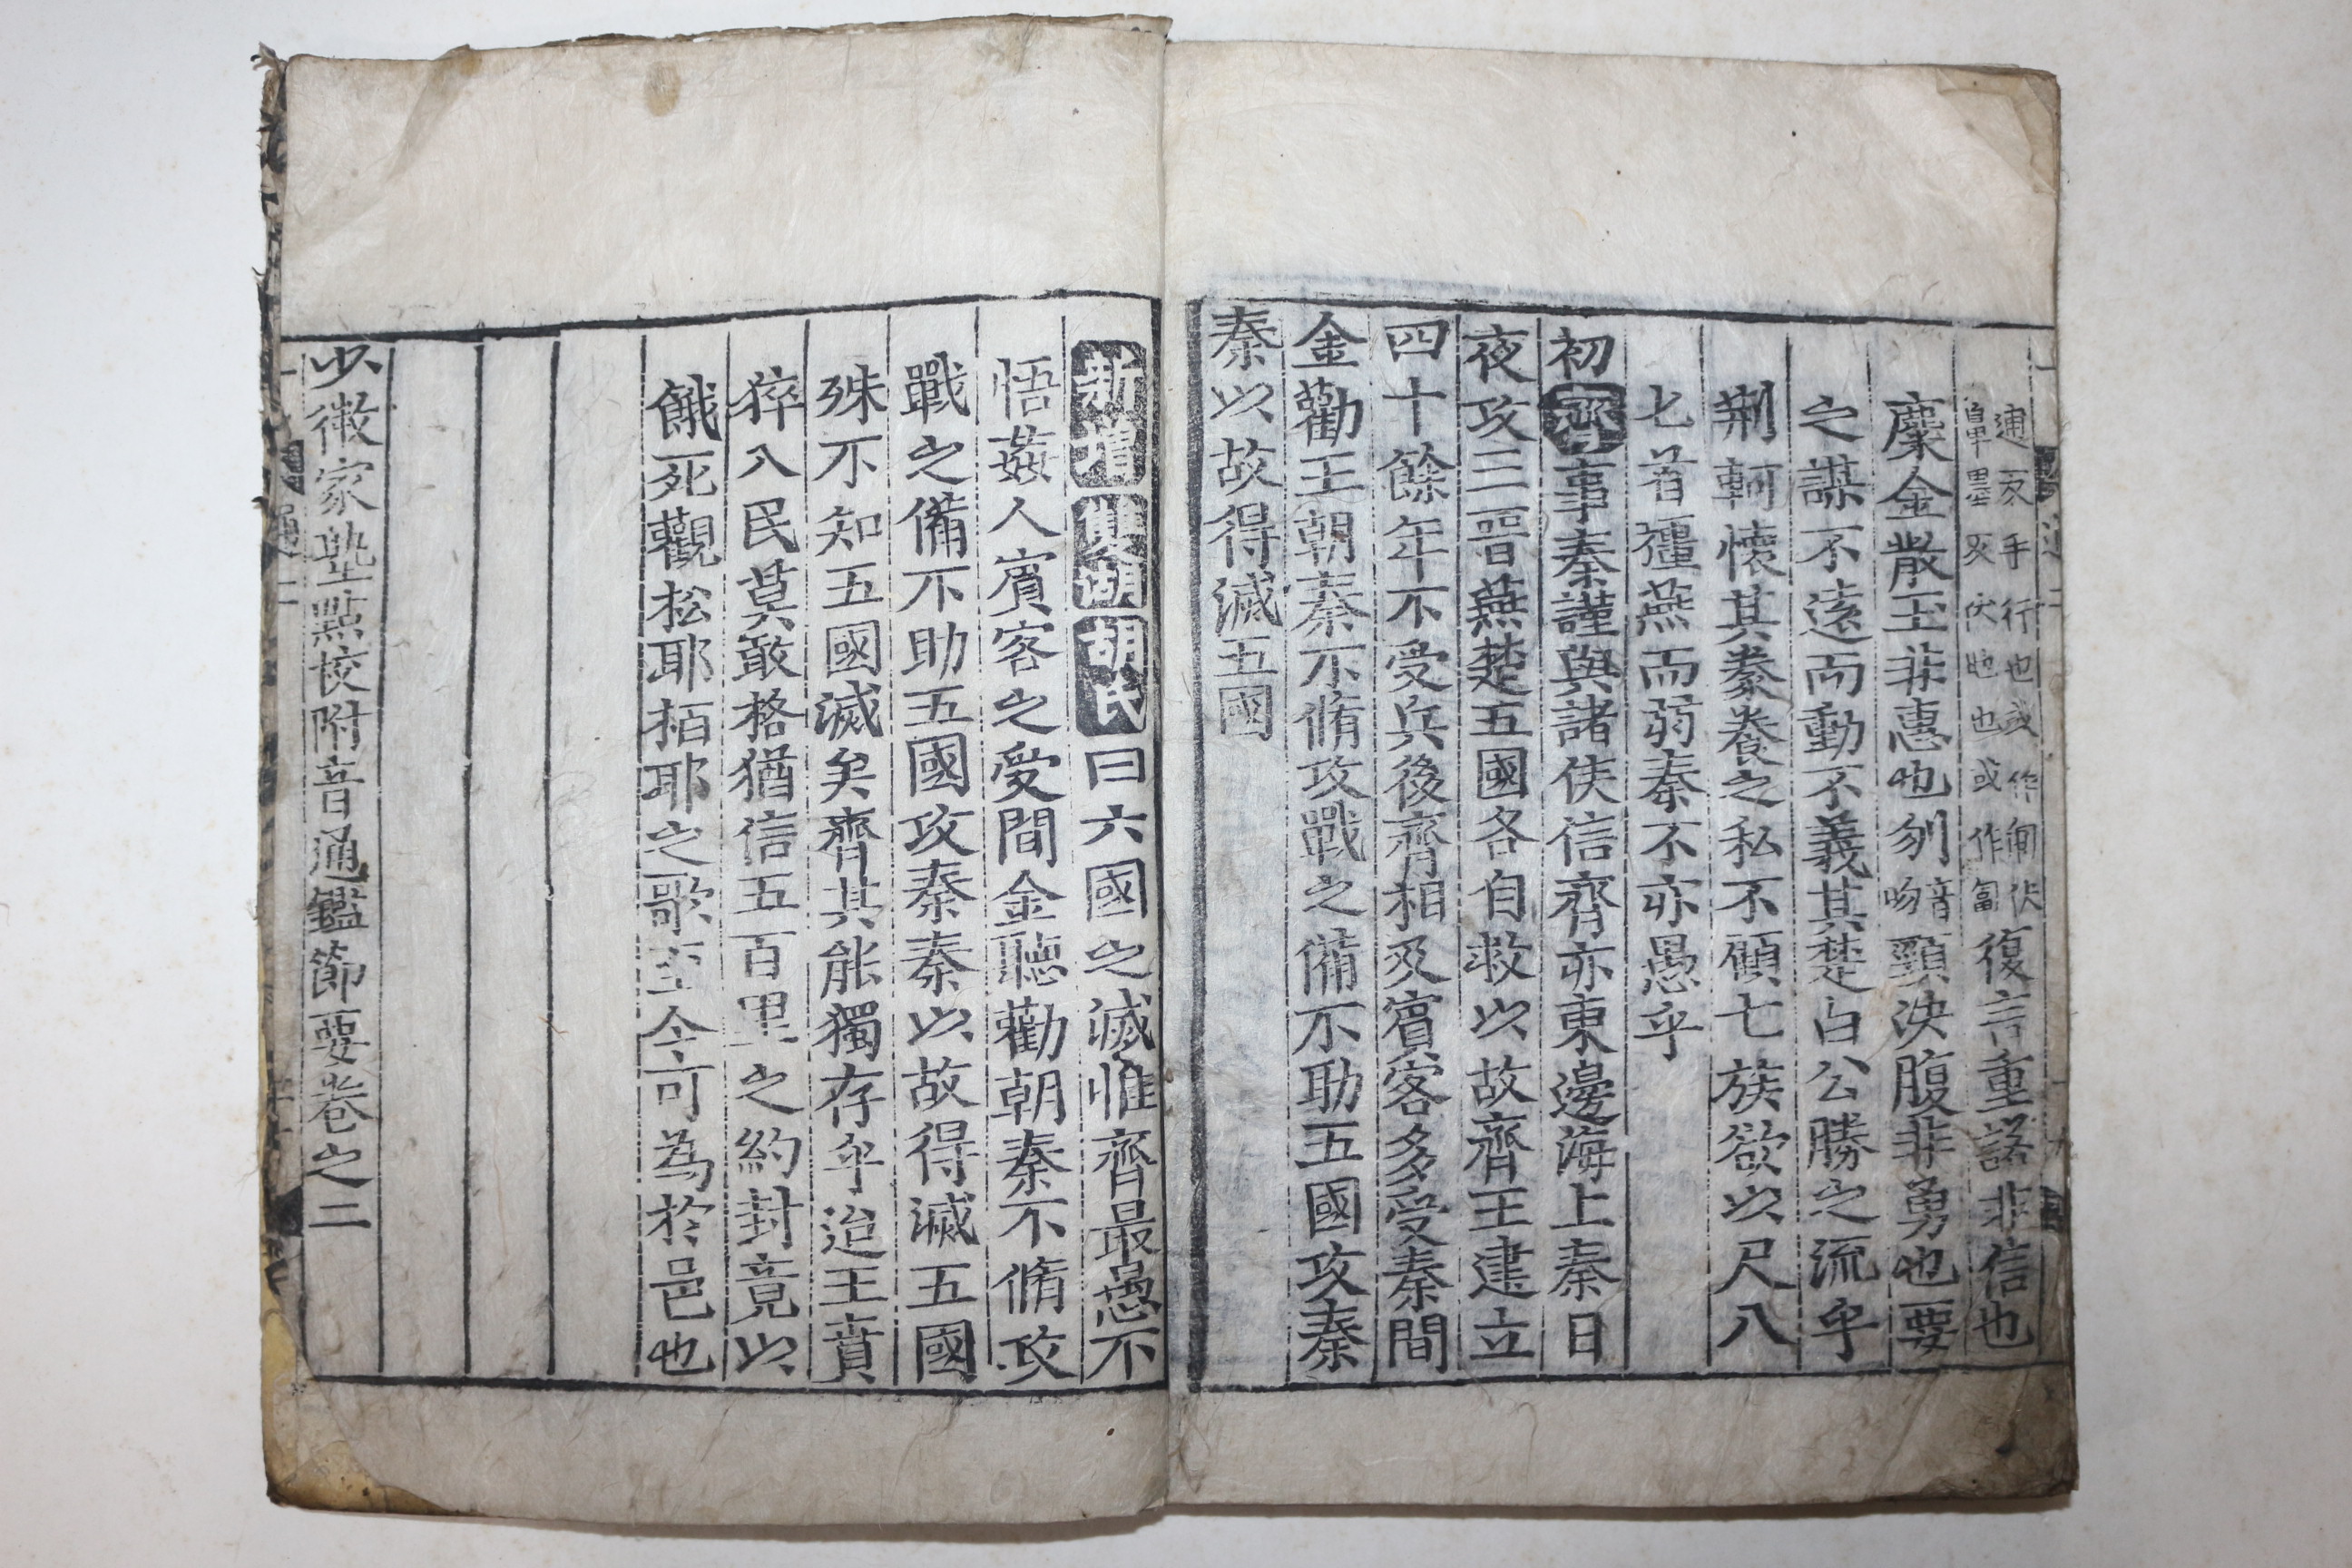 逋反手行也或作匍伏
皐墨反伏地也或作匐
復言重諾非信也
麋金散玉非惠也刎音吻頸決腹非勇也要
之謀不遠而動不義其楚白公勝之流乎
荆軻懷其豢養之私不顧七族欲以尺八
匕首彊燕而弱秦不亦愚乎
初齊事秦謹與諸侯信齊亦東邊海上秦日
夜攻三晉燕楚五國各自救以故齊王建立
四十餘年不受兵後齊相及賓客多受秦間
金勸王朝秦不脩攻戰之備不助五國攻秦
秦以故得滅五國
新增雙湖胡氏曰六國之滅惟齊最愚不
悟姦人賓客之受間金聽勸朝秦不脩攻
戰之備不助五國攻秦秦以故得滅五國
殊不知五國滅矣齊其能獨存乎迨王賁
猝入民莫敢格猶信五百里之約封竟以
餓死觀松耶栢耶之歌至今可為於邑也
少微家塾點校附音通鑑節要卷之二